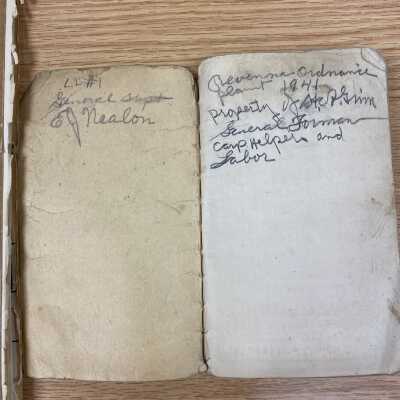 LL#1
General Supt
EJ Nealon
Revenna Ordnance
Plant 1941
Property of
General Forman
Carp Helpers and
Labor